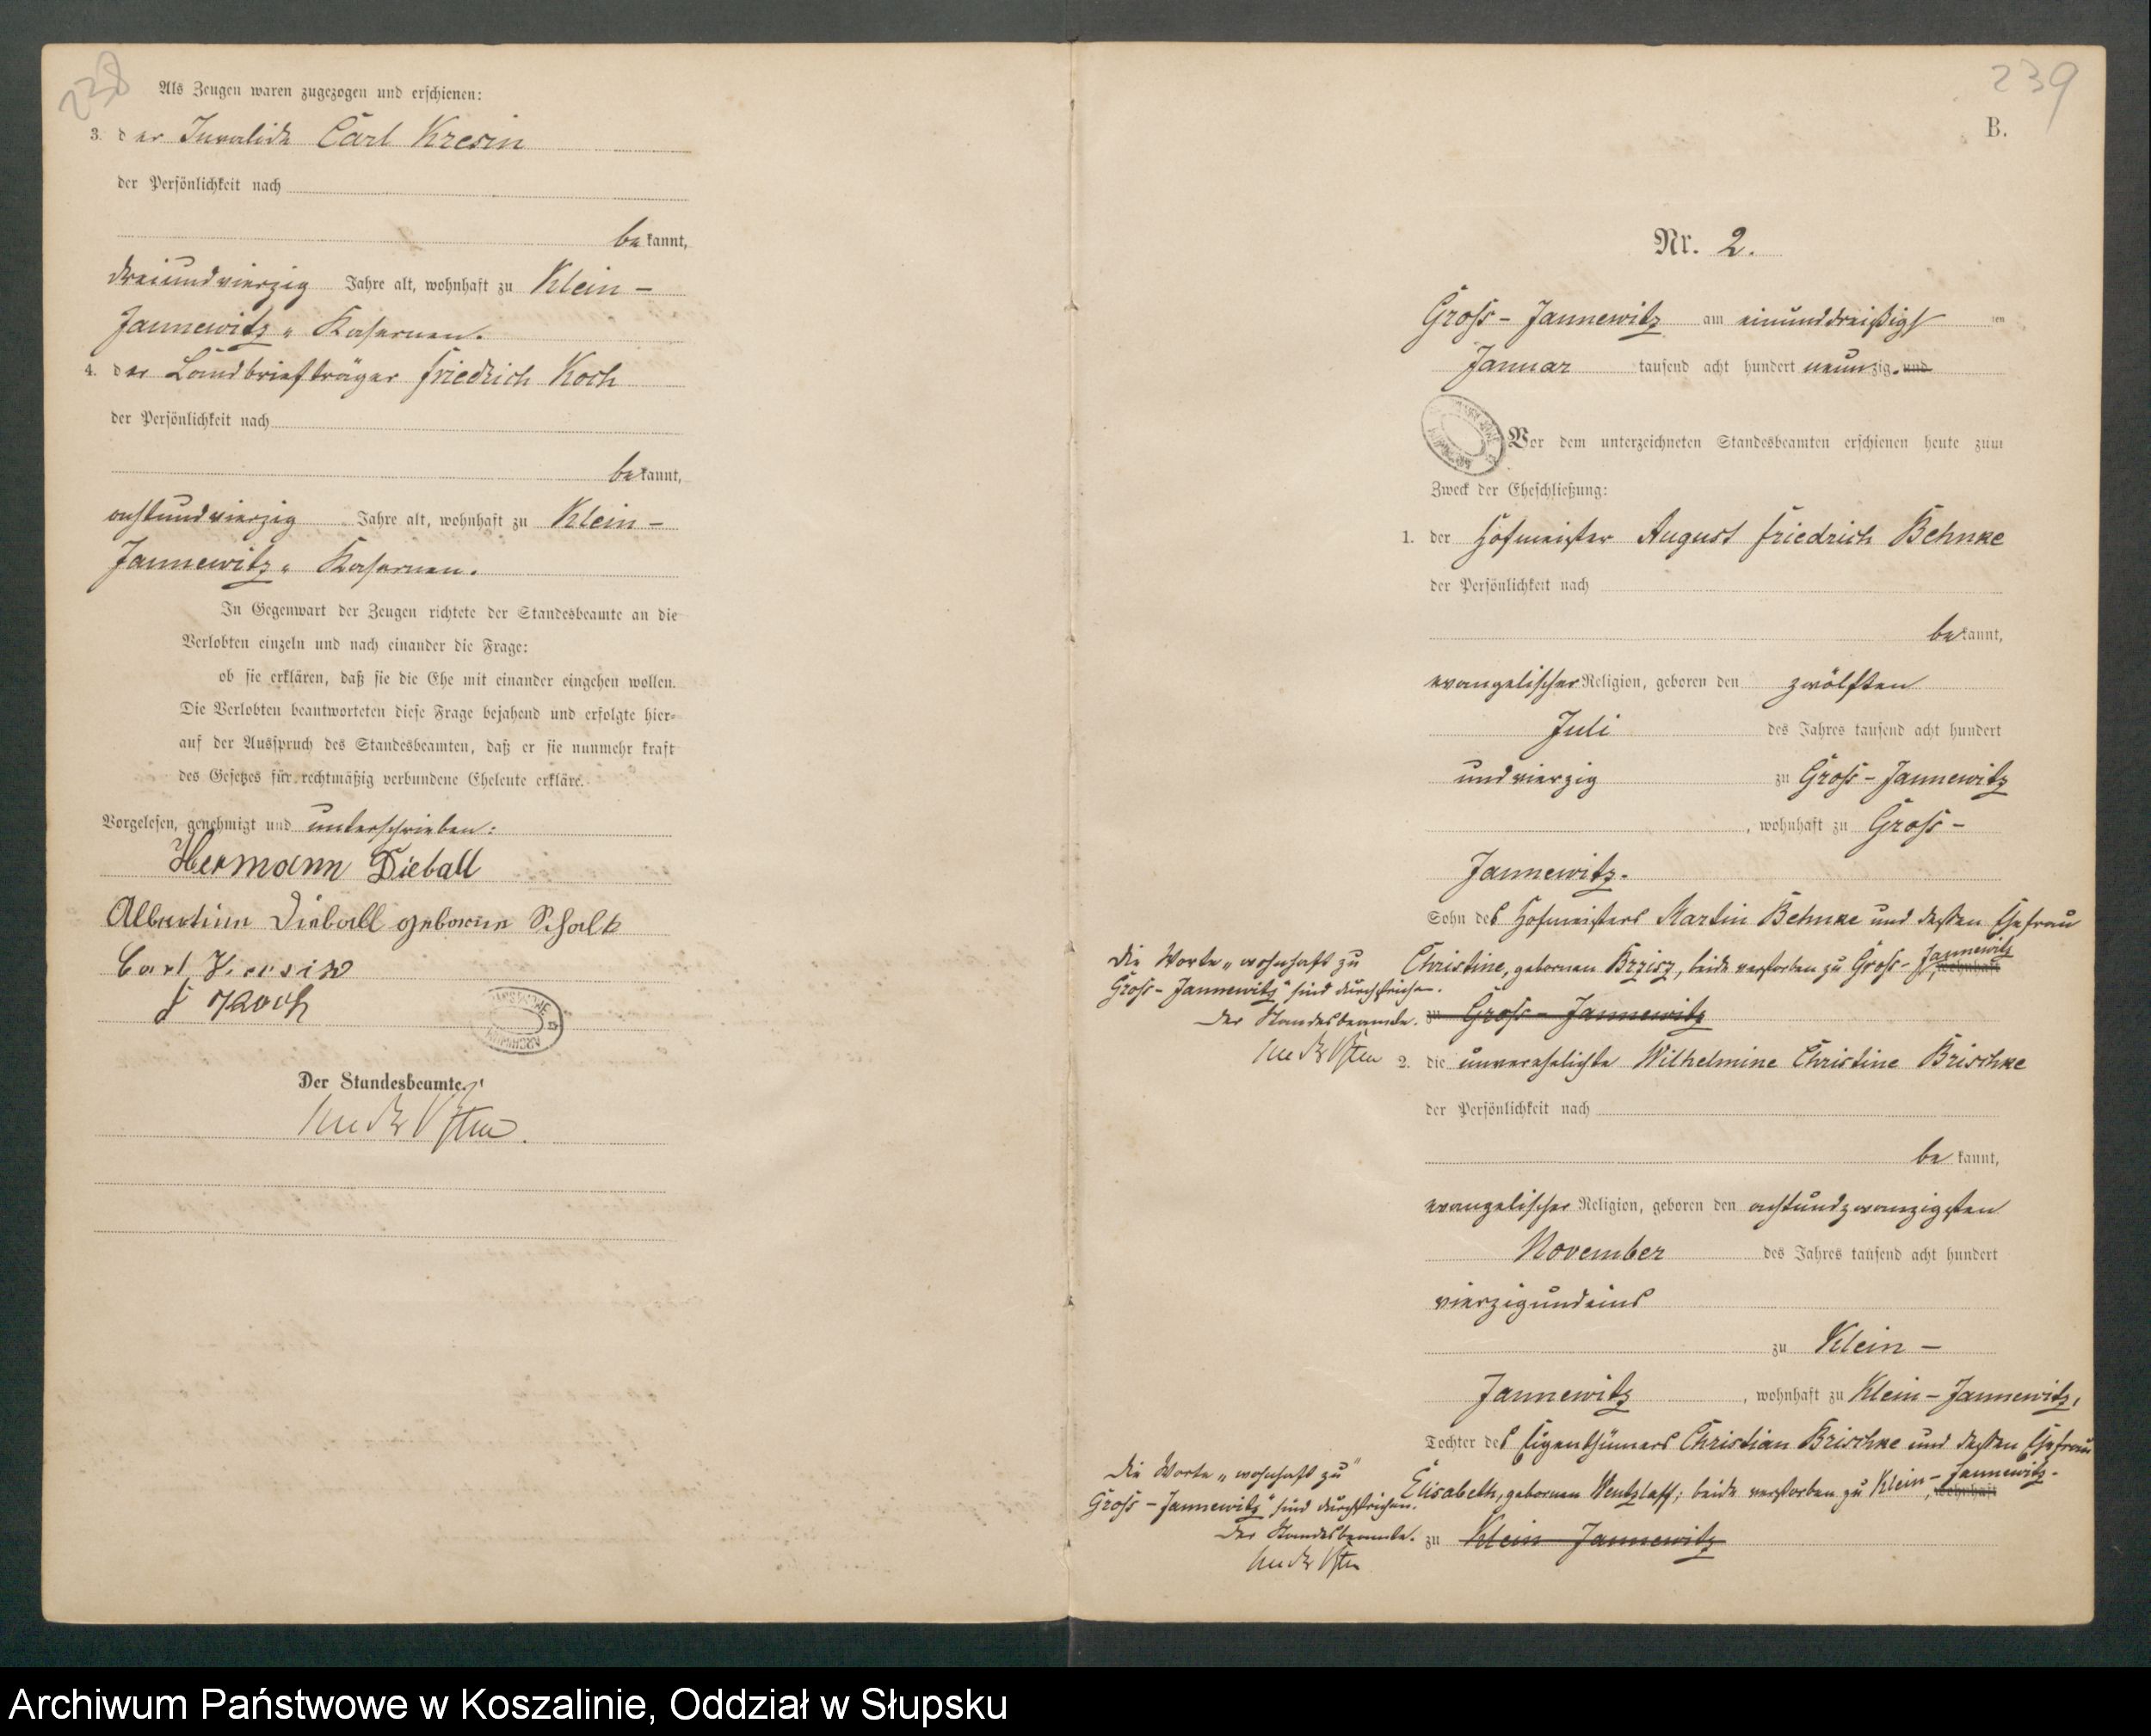 238
Als Zeugen waren zugezogen und erschienen:
3. der Invalide Carl Kresin
der Persönlichkeit nach
bekannt,
dreiundvierzig Jahre alt, wohnhaft zu Klein-
Jannewitz, Kasernen.
4. der Landbriefträger Friedrich Koch
der Persönlichkeit nach
bekannt,
achtundvierzig Jahre alt, wohnhaft zu Klein-
Jannewitz, Kasernen.
In Gegenwart der Zeugen richtete der Standesbeamte an die
Verlobten einzeln und nach einander die Frage:
ob sie erklären, daß sie die Ehe mit einander eingehen wollen.
Die Verlobten beantworteten diese Frage bejahend und erfolgte hier-
auf der Ausspruch des Standesbeamten, daß er sie nunmehr kraft
des Gesetzes für rechtmäßig verbundene Eheleute erkläre.
Vorgelesen, genehmigt und unterschrieben:
Hermann Dieball
Albertine Dieball geborene Schalk
Carl Kresin
F Koch
Der Standesbeamte.
239
B.
Nr. 2.
Gross-Jannewitz am einunddreißigsten
Januar tausend acht hundert neunzig und
Vor dem unterzeichneten Standesbeamten erschienen heute zum
Zweck der Eheschließung:
1. der Hofmeister August Friedrich Behnke
der Persönlichkeit nach
bekannt,
evangelischer Religion, geboren den zwölften
Juli des Jahres tausend acht hundert
undvierzig zu Gross-Jannewitz
, wohnhaft zu Gross-
Jannewitz.
Sohn des Hofmeisters Martin Behnke und dessen Ehefrau
Christine, gebornen, beide verstorben zu Gross-Jannewitz, wohnhaft
zu Gross-Jannewitz
Die Worte „wohnhaft zu
Gross-Jannewitz" sind durchstrichen.
Der Standesbeamte.
2. die unverehelichte Wilhelmine Christine Brischke
der Persönlichkeit nach
bekannt,
evangelischer Religion, geboren den achtundzwanzigsten
November des Jahres tausend acht hundert
vierzigundeins
zu Klein-
Jannewitz, wohnhaft zu Klein-Jannewitz,
Tochter des Eigenthümers Christian Brischke und dessen Ehefrau
Elisabeth, gebornen Wentzlaff; beide verstorben zu Klein-Jannewitz, wohnhaft
zu Klein Jannewitz
Die Worte „wohnhaft zu"
Gross-Jannewitz" sind durchstrichen.
Der Standesbeamte.
Archiwum Państwowe w Koszalinie, Oddział w Słupsku